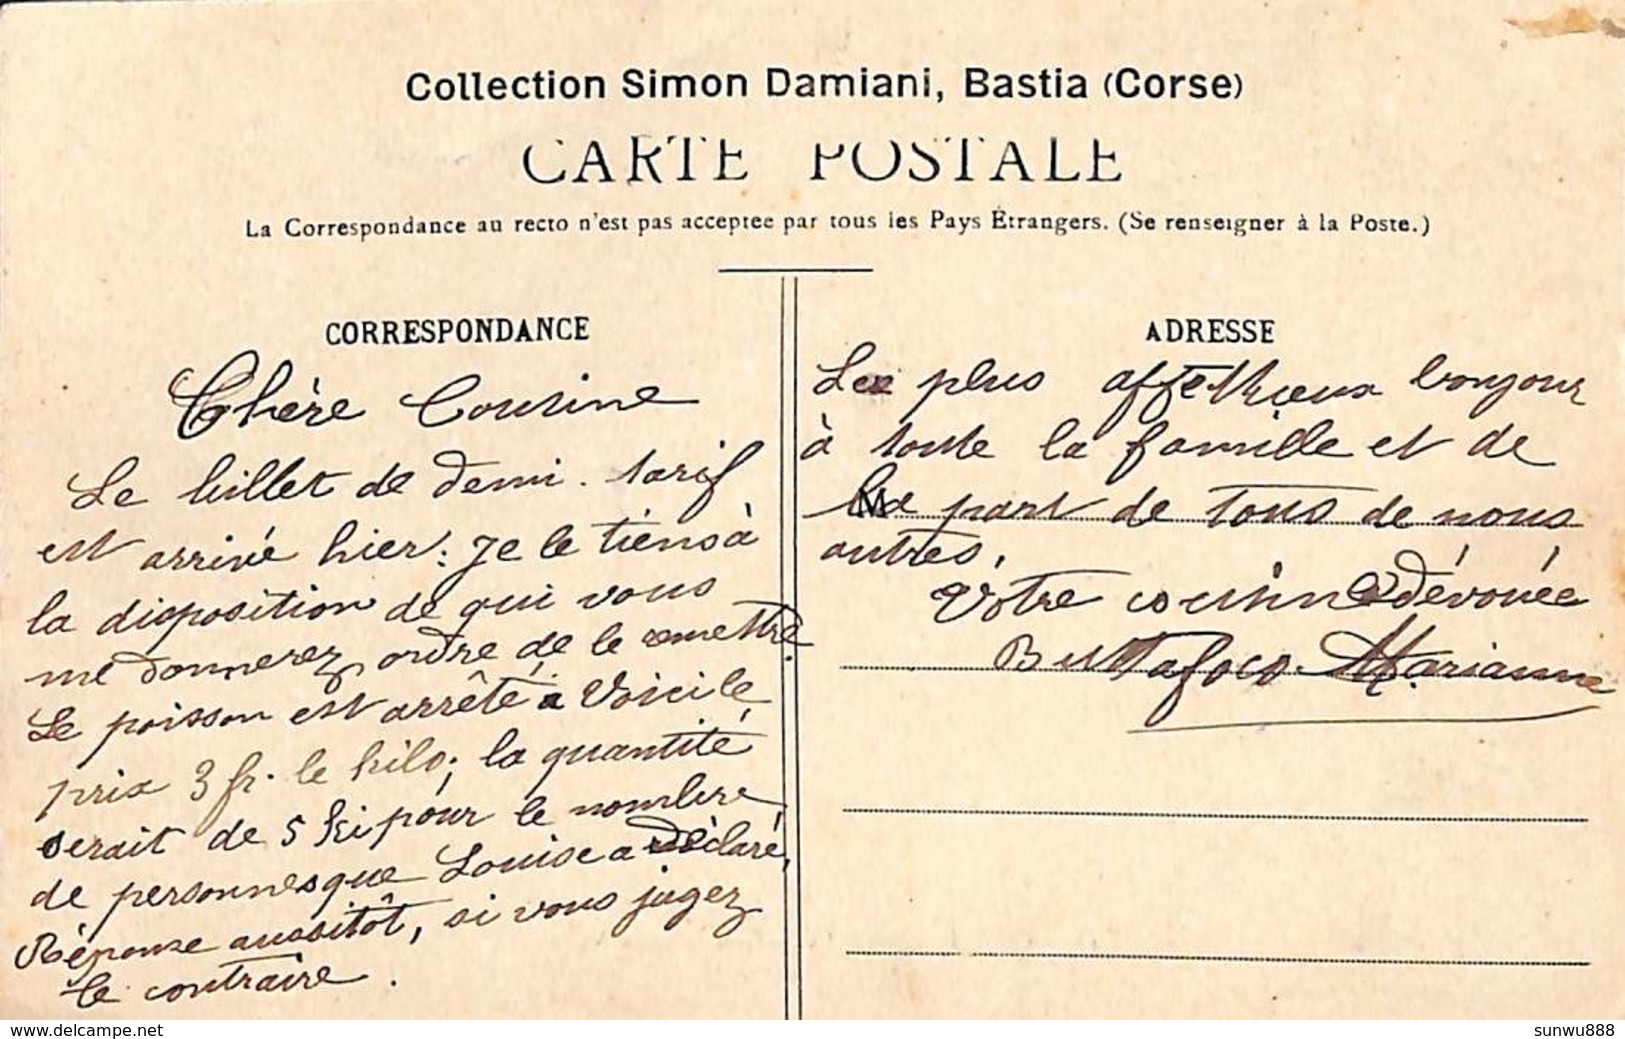 Collection Simon Damiani, Bastia (Corse)
CARTE POSTALE
La Correspondance au recto n'est pas acceptée par tous les Pays Étrangers. (Se renseigner à la Poste.)
CORRESPONDANCE
Chère Cousine
Le billet de demi-tarif
est arrivé hier: Je le tiens à
la disposition de qui vous
me donnerez ordre de le remettre.
Le poisson est arrêté à Voici le
prix 3 fr. le kilo; la quantité
serait de 5 ki pour le nombre
de personnes que Louise a déclaré,
Réponse aussitôt, si vous jugez
le contraire.
ADRESSE
Les plus affectueux bonjour
à toute la famille et de
la part de tous de nous
M
autres.
Votre cousine dévouée
Buttafoco Marianne
www.delcampe.net
sunwu888